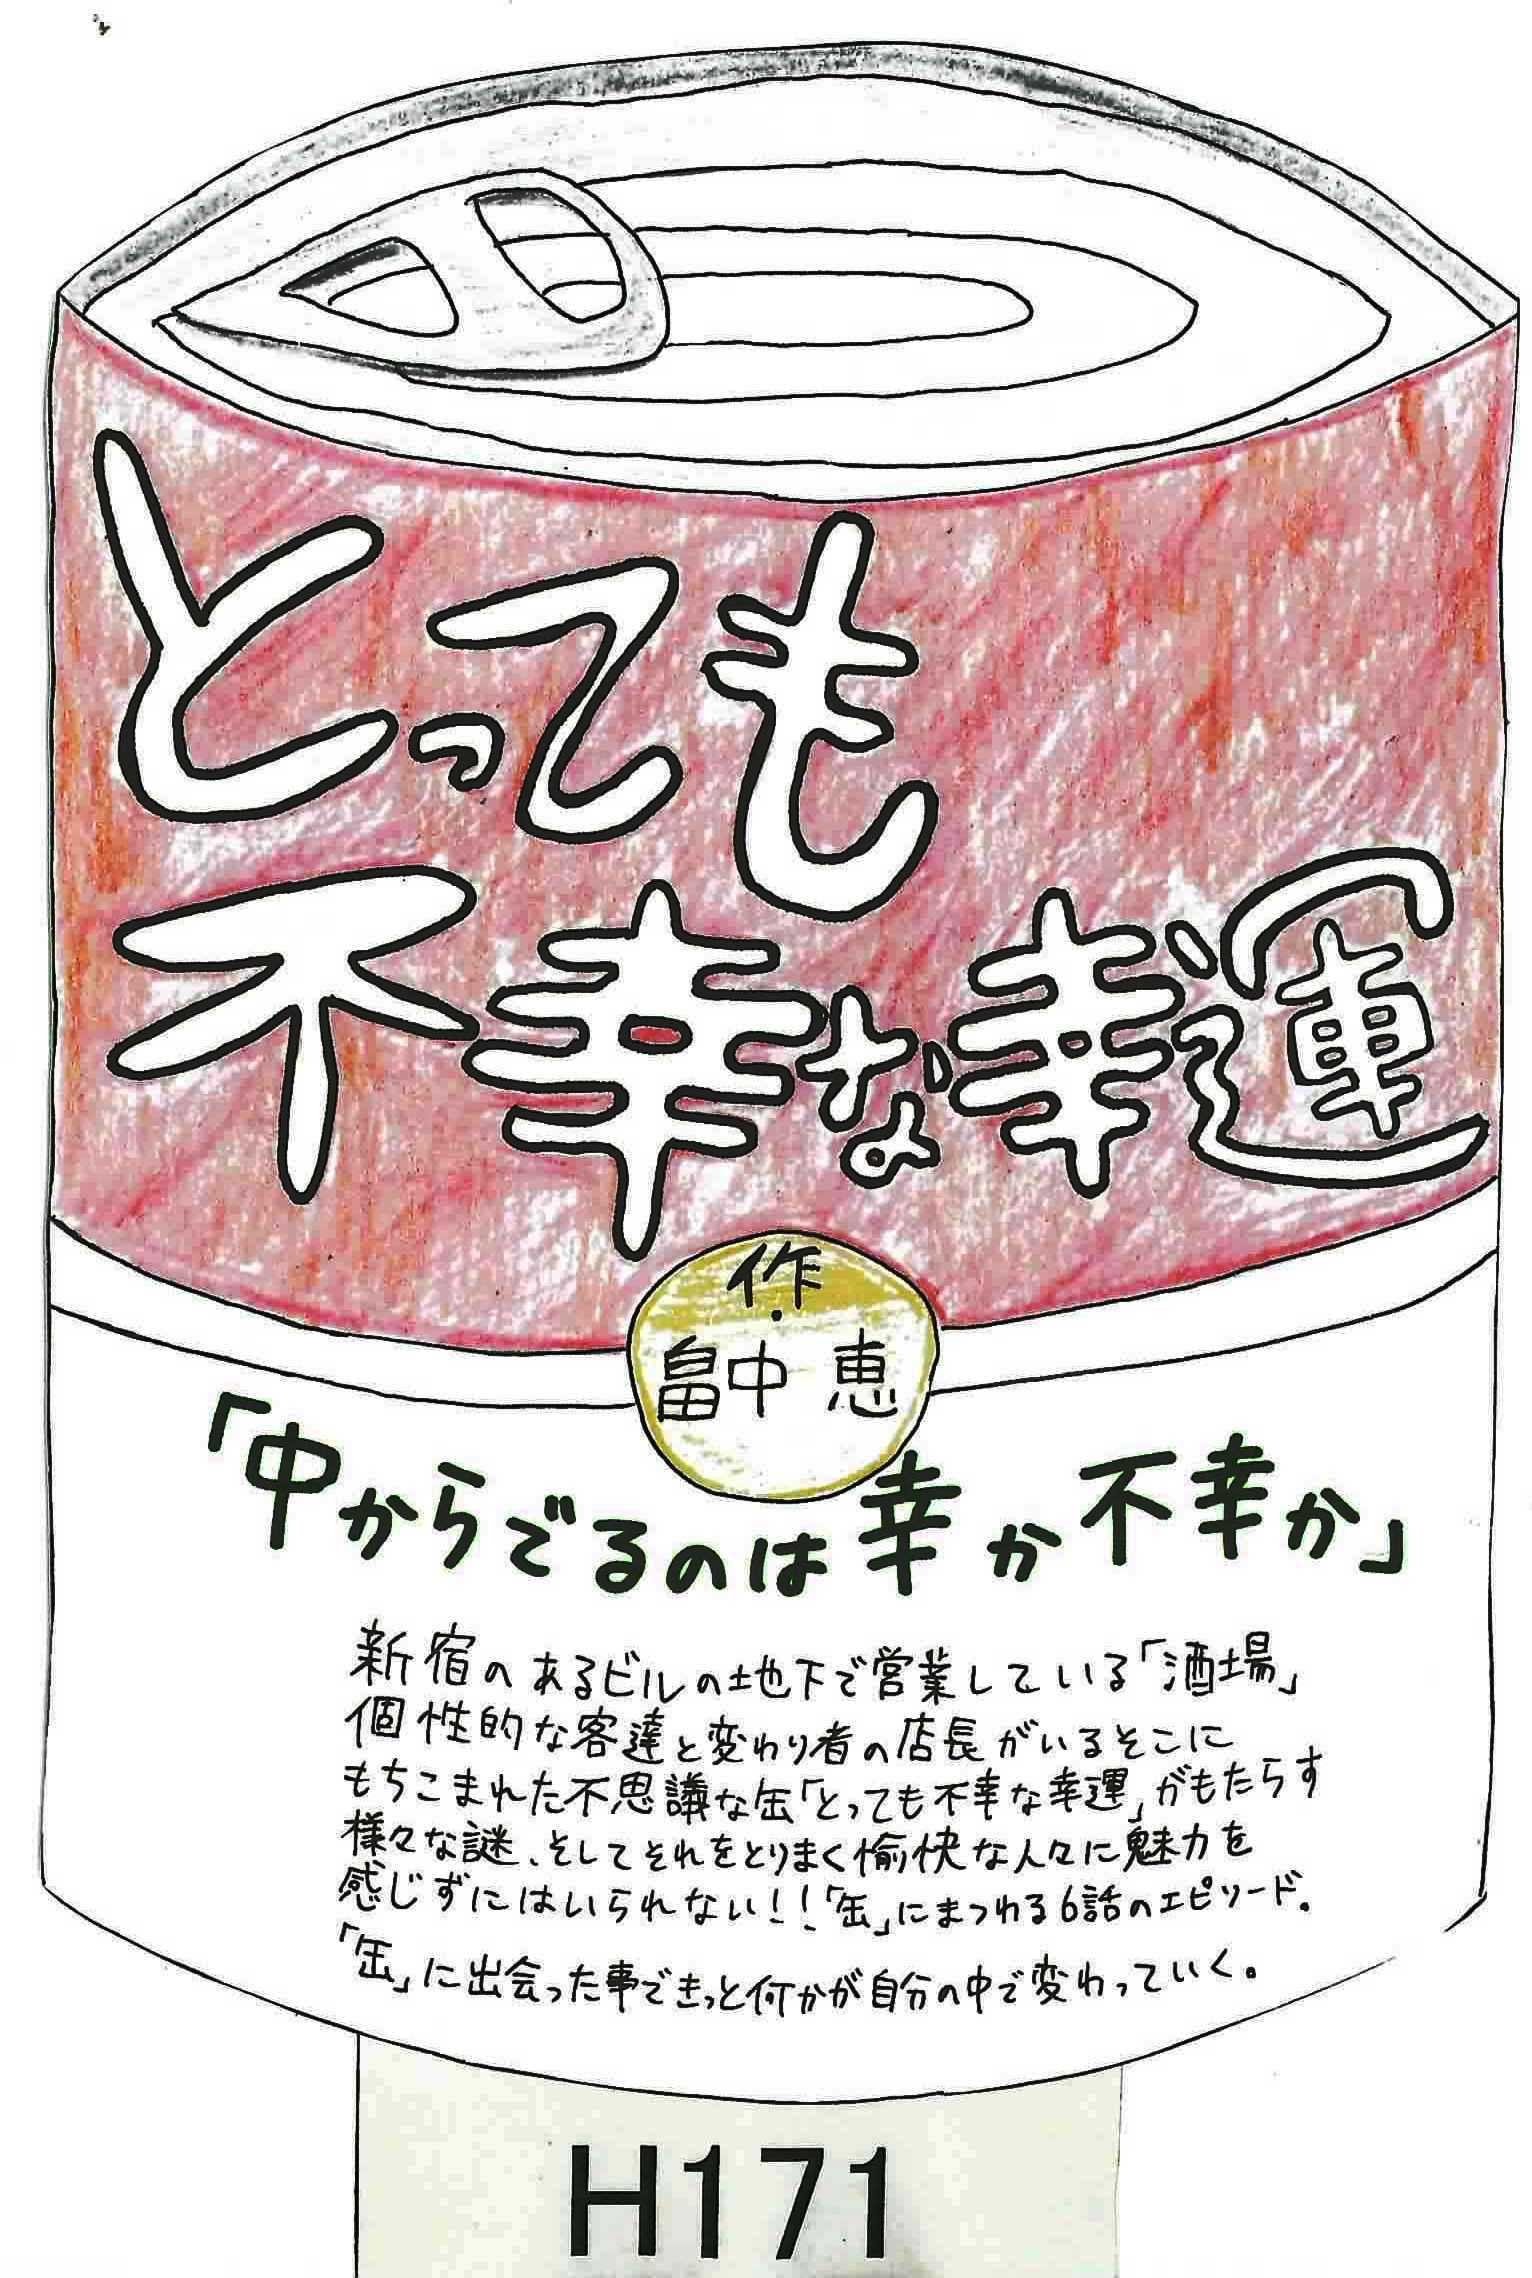 とっても
不幸な幸運
作・
畠中 恵
「中からでるのは幸か不幸か」
新宿のあるビルの地下で営業している「酒場」
個性的な客達と変わり者の店長がいるそこに
もちこまれた不思議な缶「とっても不幸な幸運」がもたらす
様々な謎、そしてそれをとりまく愉快な人々に魅力を
感じずにはいられない!!「缶」にまつわる6話のエピソード。
「缶」に出会った事できっと何かが自分の中で変わっていく。
H171